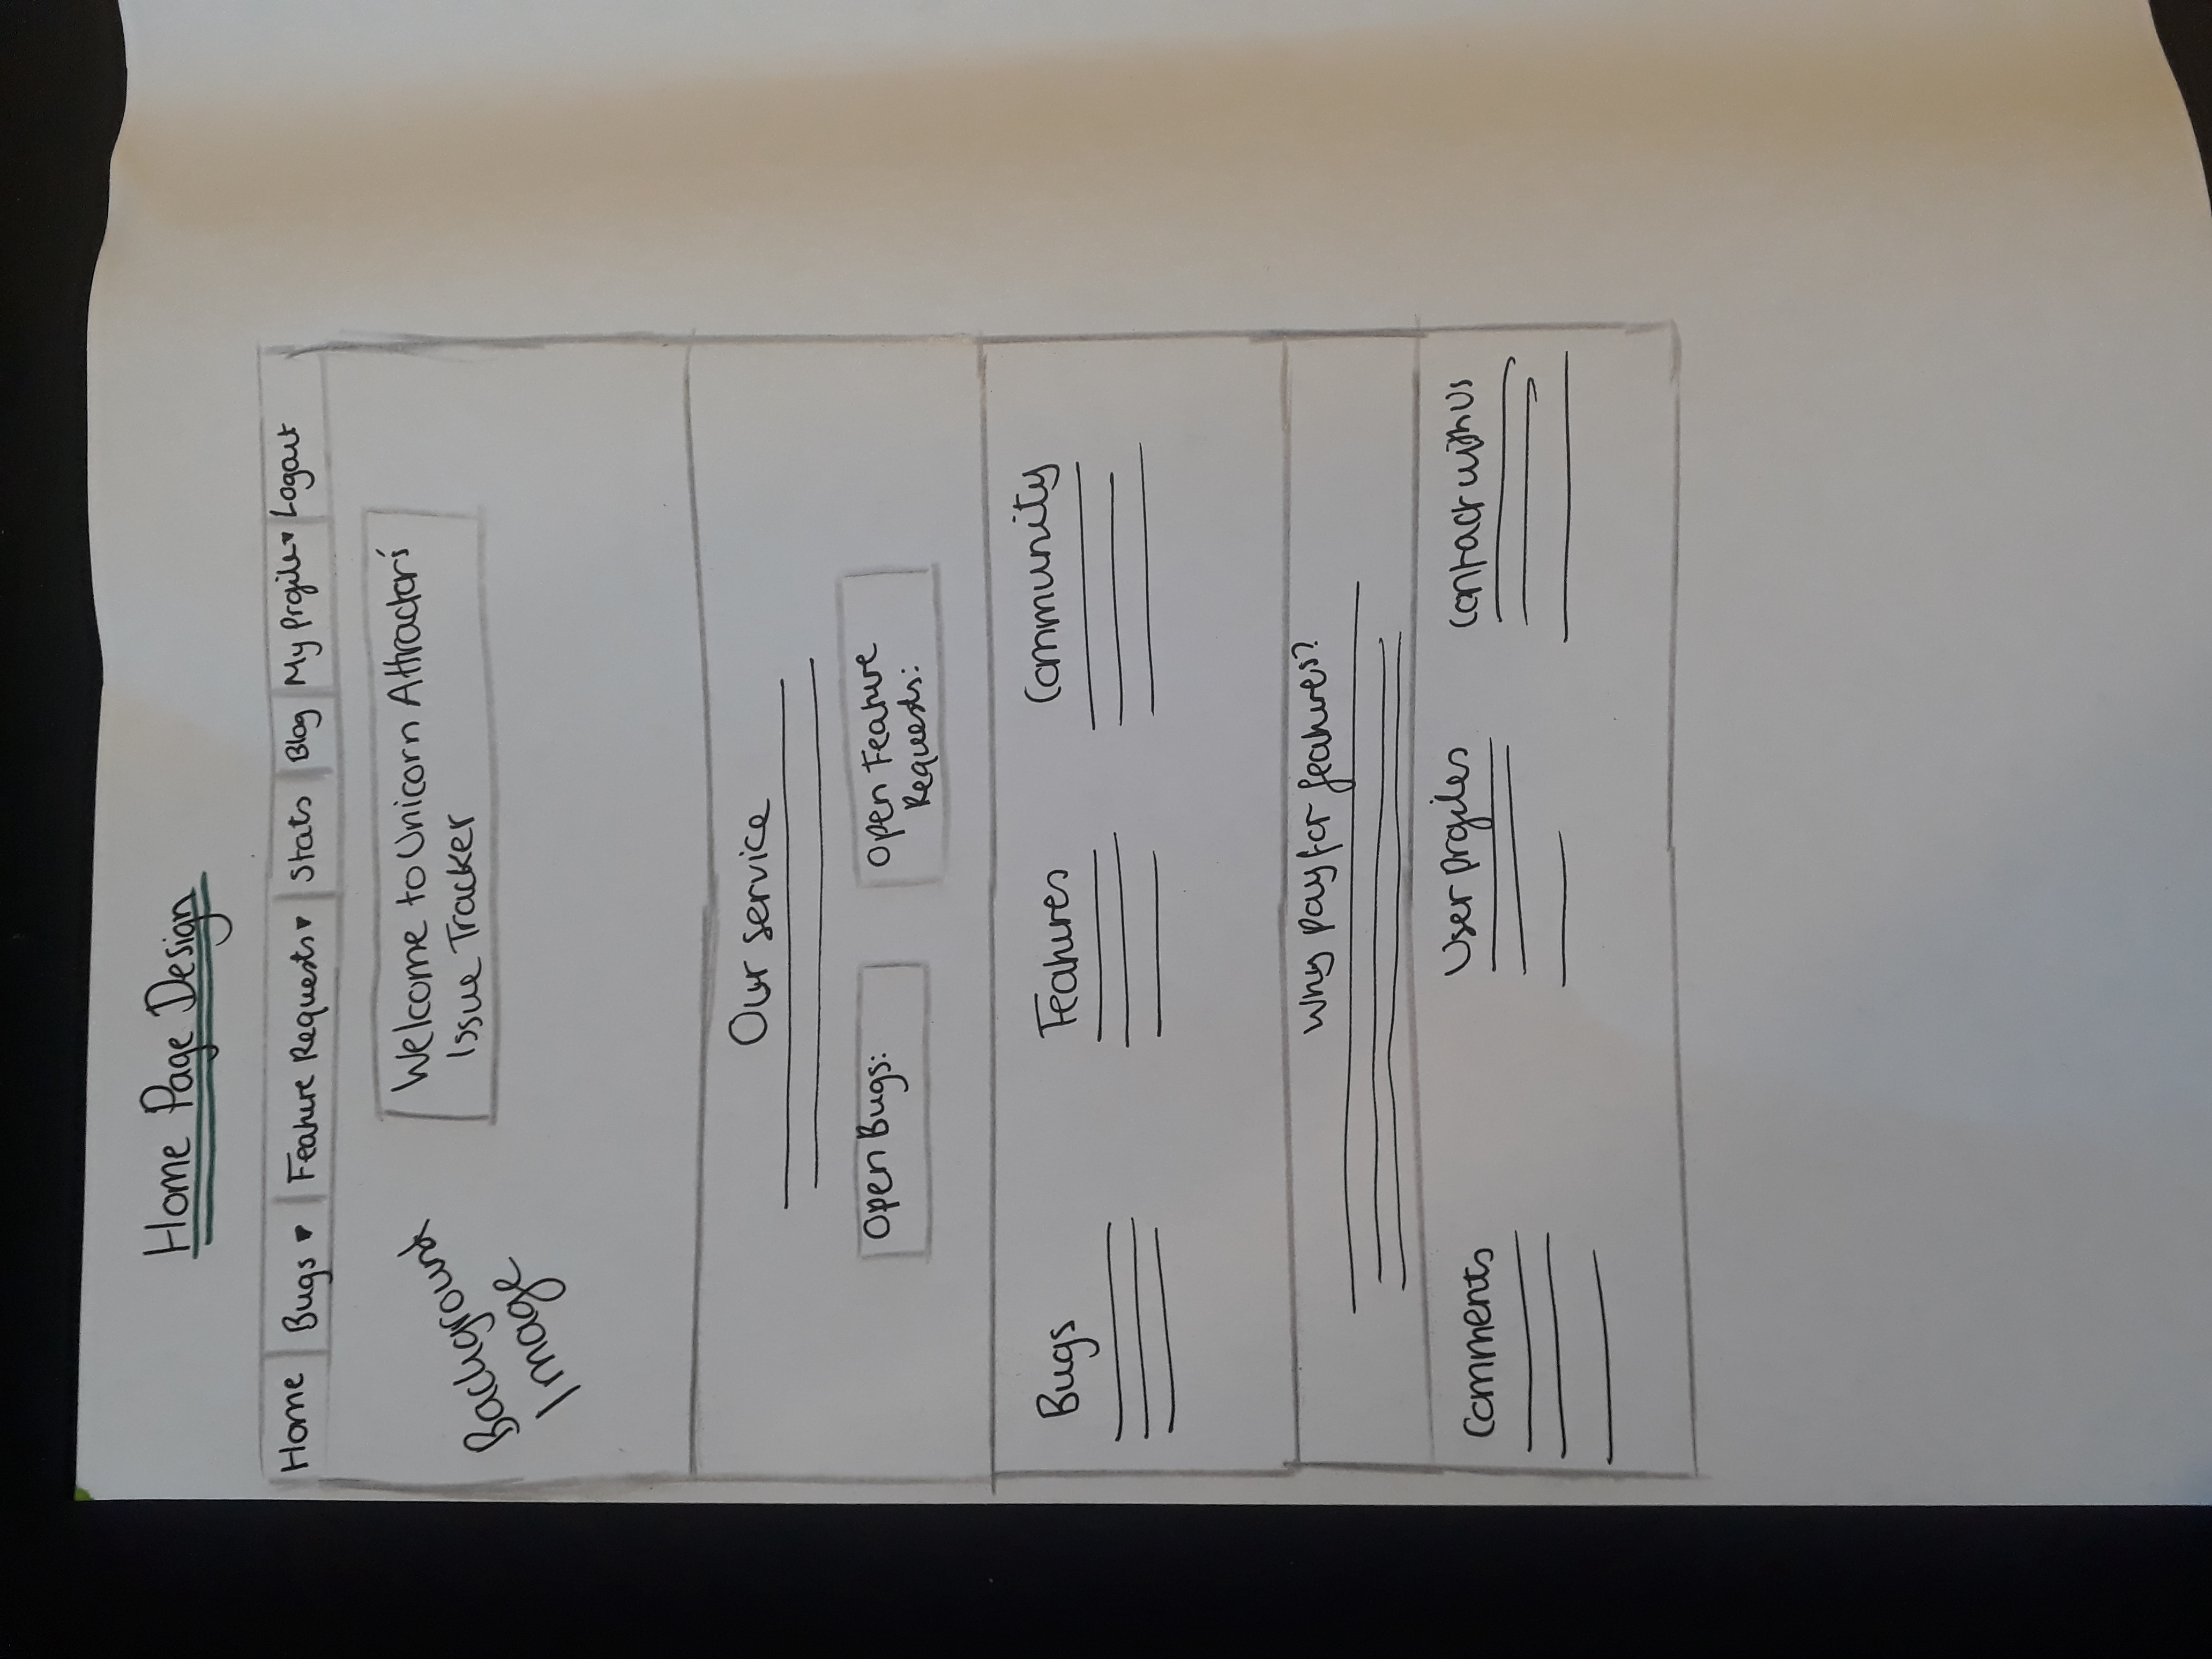 Home Page Design
Home Bugs ▾ Feature Requests ▾ Stats Blog My Profile ▾ Logout
Welcome to Unicorn Attractor's
Issue Tracker
Background
Image
Our service
Open Bugs:
Open Feature
Requests:
Bugs Features Community
Why pay for features?
Comments User Profiles Contact with Us